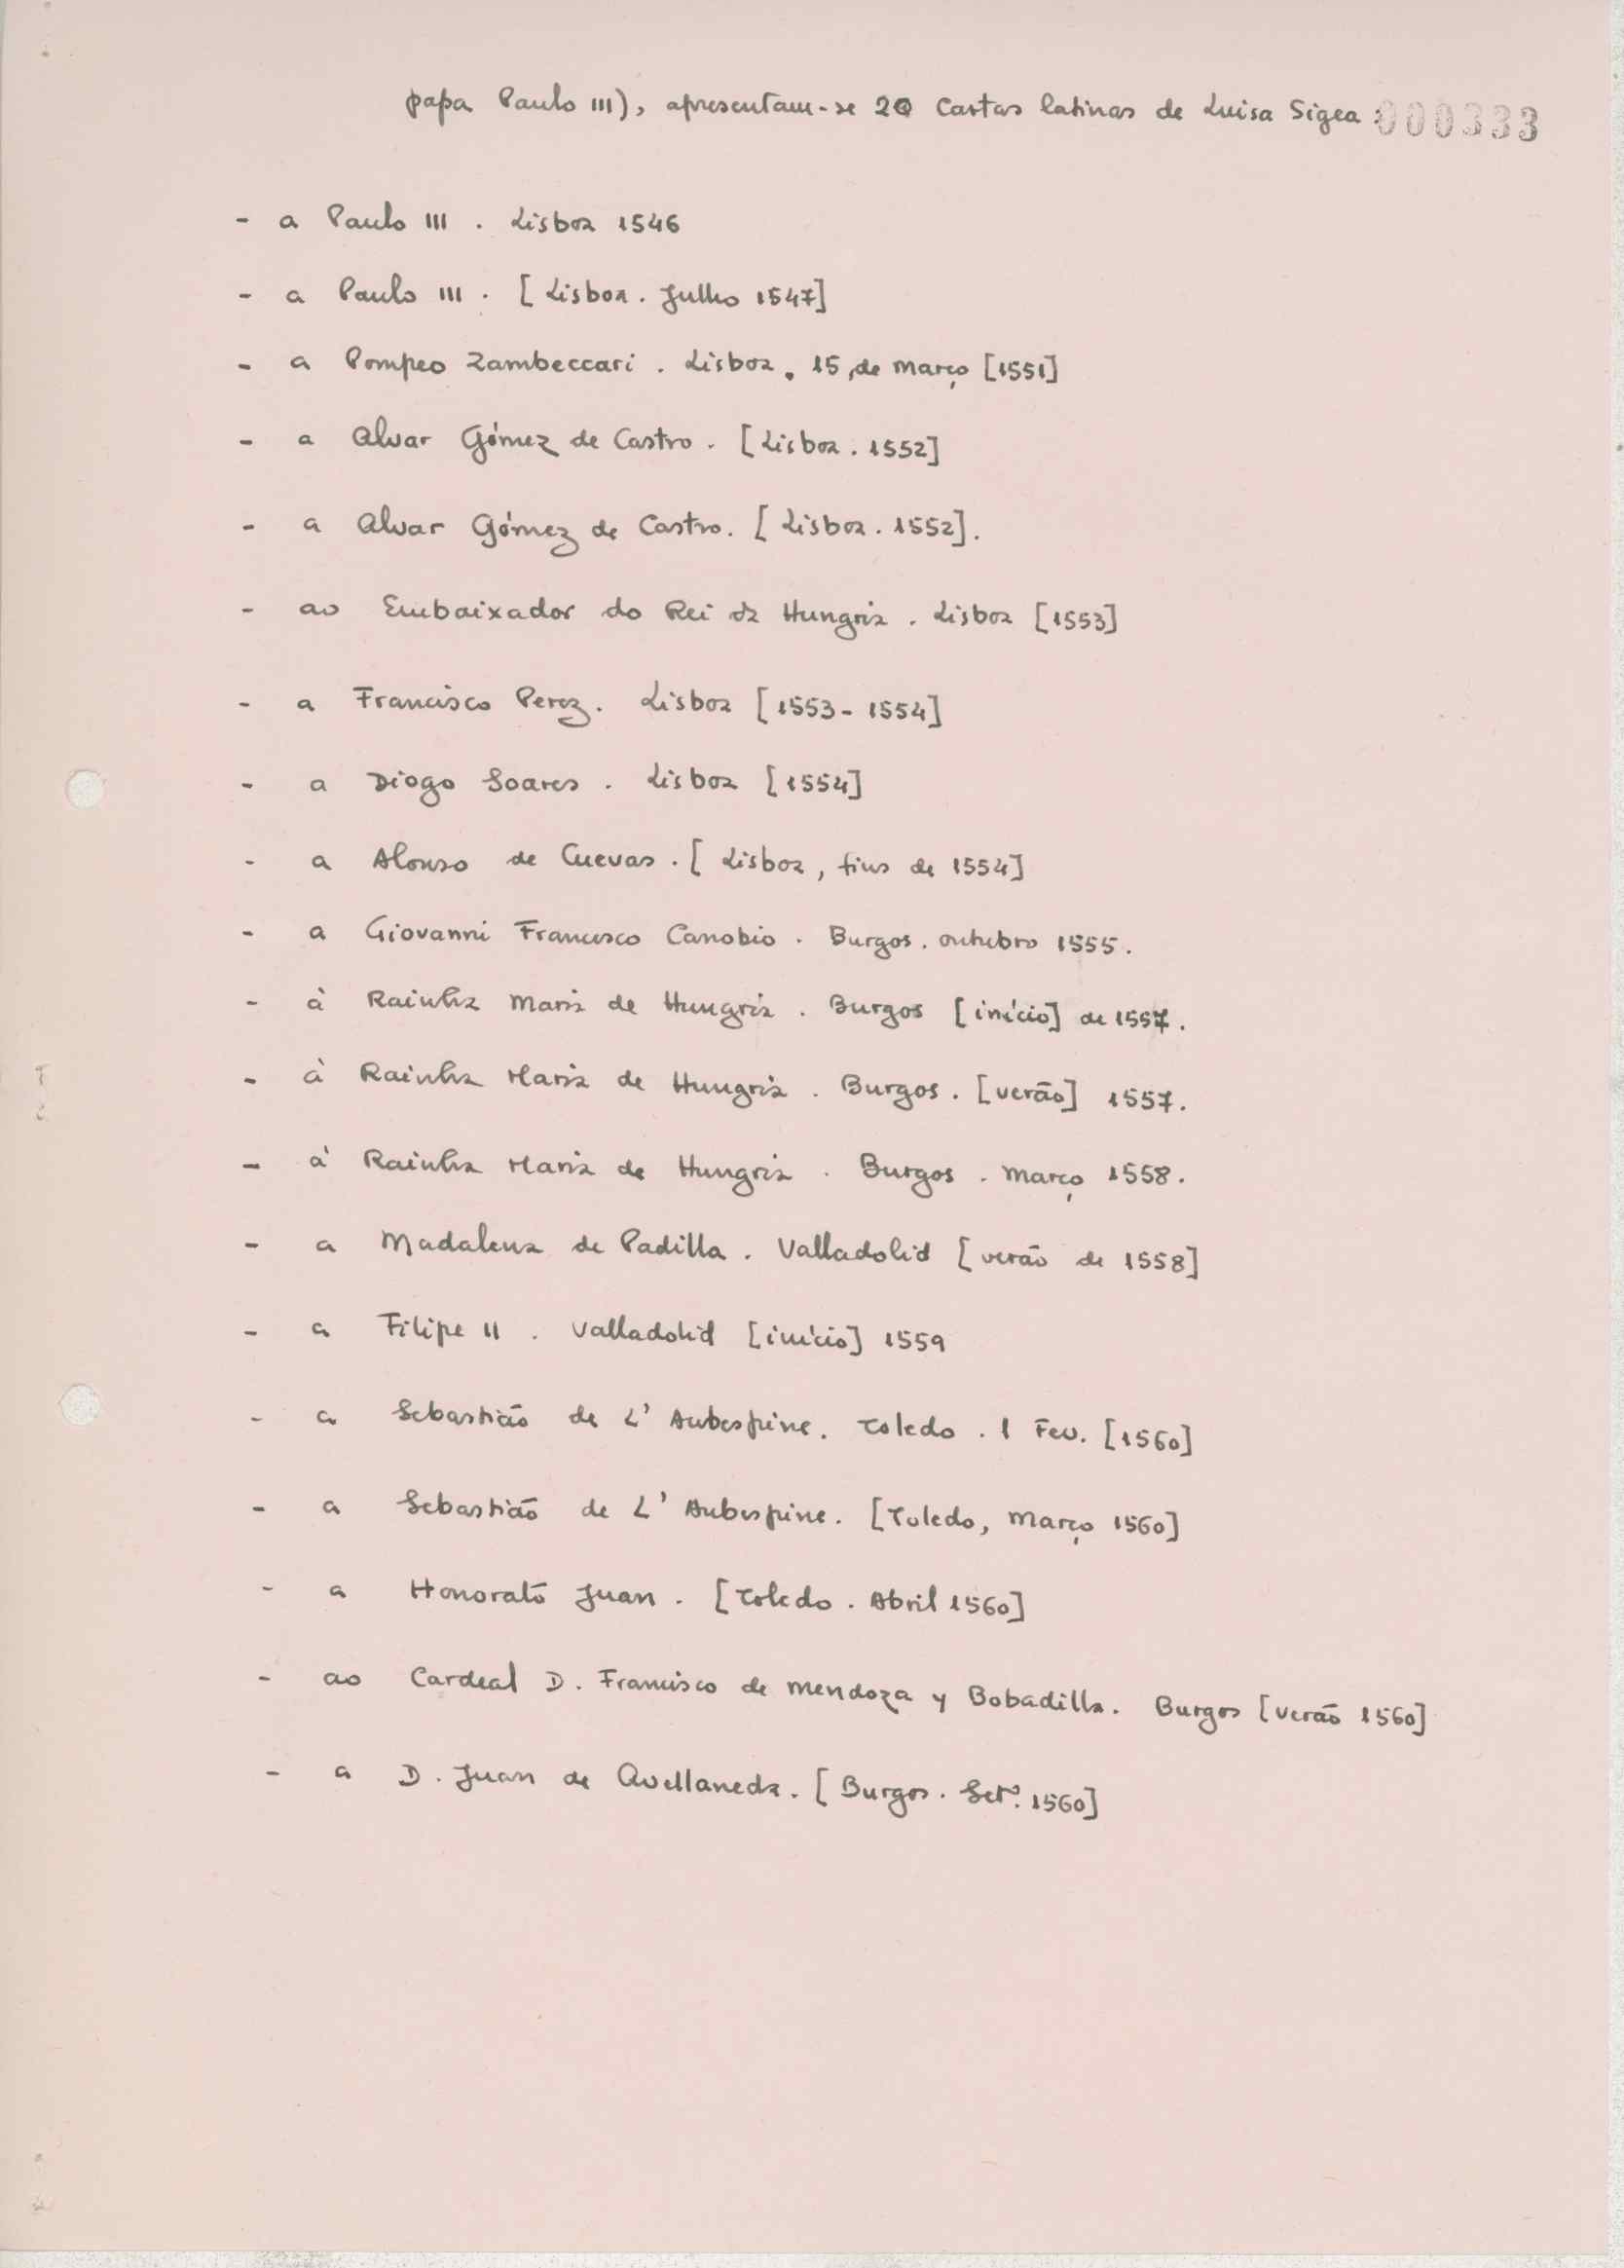 papa Paulo III), apresentam-se 20 Cartas latinas de Luisa Sigea : 000333
- a Paulo III . Lisboa 1546
- a Paulo III . [Lisboa . Julho 1547]
- a Pompeo Zambeccari . Lisboa . 15 de março [1551]
- a Alvar Gómez de Castro . [Lisboa . 1552]
- a Alvar Gómez de Castro. [Lisboa . 1552].
- ao Embaixador do Rei da Hungria . Lisboa [1553]
- a Francisco Perez . Lisboa [1553 - 1554]
- a Diogo Soares . Lisboa [1554]
- a Alonso de Cuevas . [Lisboa, fins de 1554]
- a Giovanni Francesco Canobio . Burgos . outubro 1555.
- à Rainha Maria de Hungria . Burgos [início] de 1557.
- à Rainha Maria de Hungria . Burgos . [verão] 1557.
- à Rainha Maria de Hungria . Burgos . março 1558.
- a Madalena de Padilla . Valladolid [verão de 1558]
- a Filipe II . Valladolid [início] 1559
- a Sebastião de L' Aubespine . Toledo . 1 Fev. [1560]
- a Sebastião de L' Aubespine . [Toledo, março 1560]
- a Honorato Juan . [Toledo . Abril 1560]
- ao Cardeal D. Francisco de Mendoza y Bobadilla. Burgos [verão 1560]
- a D. Juan de Avellaneda . [Burgos . Setº. 1560]